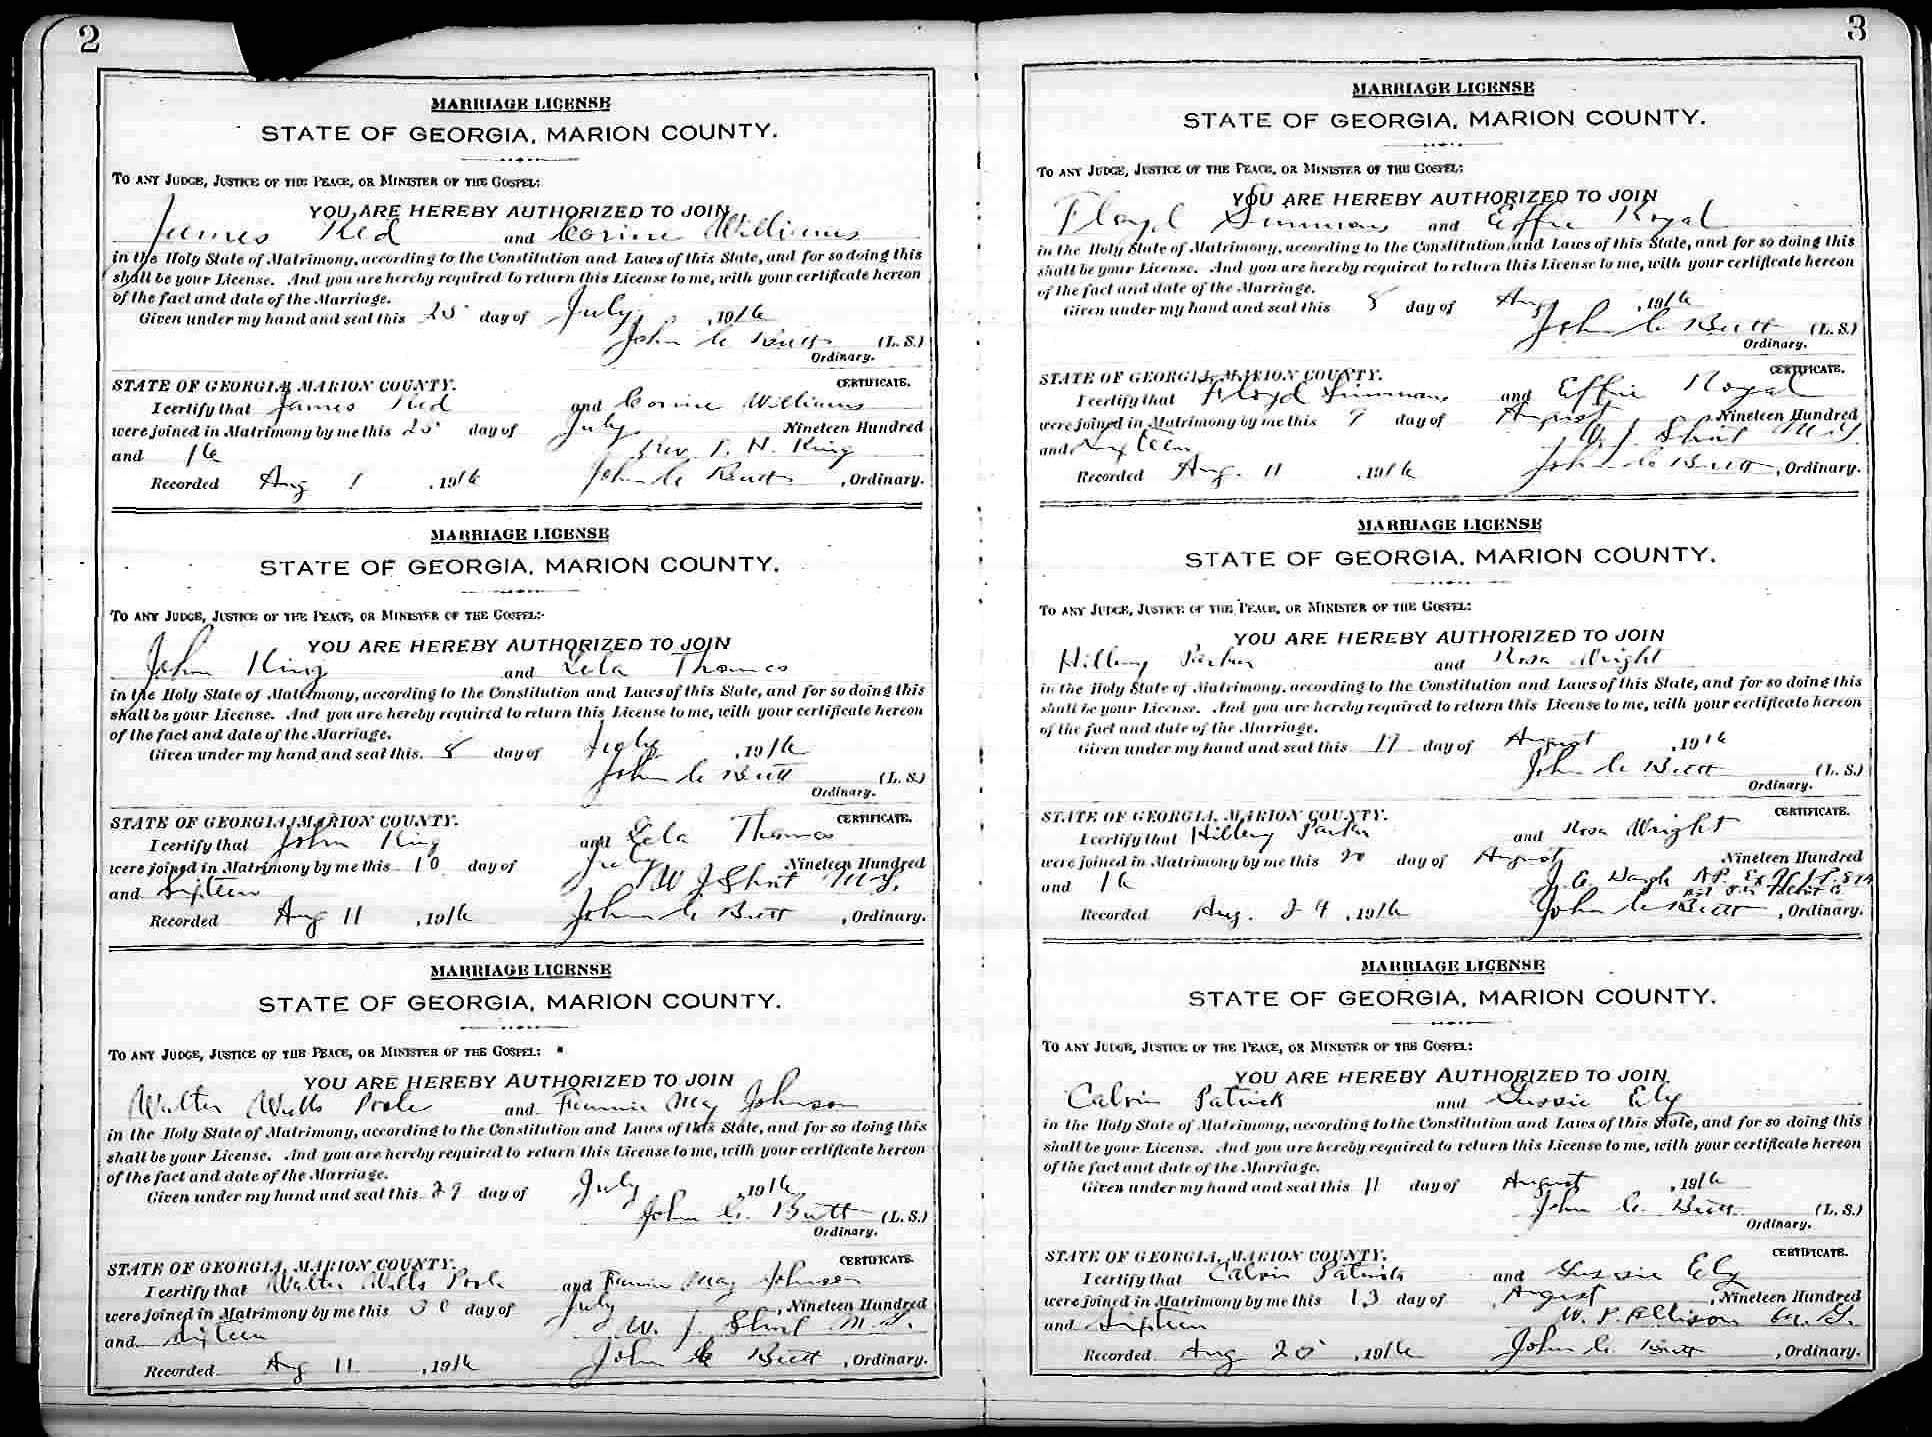 2
MARRIAGE LICENSE
STATE OF GEORGIA, MARION COUNTY.
TO ANY JUDGE, JUSTICE OF THE PEACE, OR MINISTER OF THE GOSPEL:
YOU ARE HEREBY AUTHORIZED TO JOIN
James Red and Corine Williams
in the Holy State of Matrimony, according to the Constitution and Laws of this State, and for so doing this
shall be your License. And you are hereby required to return this License to me, with your certificate hereon
of the fact and date of the Marriage.
Given under my hand and seal this 25 day of July, 1916
John C Butt (L. S.)
Ordinary.
STATE OF GEORGIA, MARION COUNTY. CERTIFICATE.
I certify that James Red and Corine Williams
were joined in Matrimony by me this 25 day of July Nineteen Hundred
and 16 Rev. P. H. King
Recorded Aug 1, 1916 John C Butt, Ordinary.
MARRIAGE LICENSE
STATE OF GEORGIA, MARION COUNTY.
TO ANY JUDGE, JUSTICE OF THE PEACE, OR MINISTER OF THE GOSPEL:
YOU ARE HEREBY AUTHORIZED TO JOIN
John King and Lela Thomas
in the Holy State of Matrimony, according to the Constitution and Laws of this State, and for so doing this
shall be your License. And you are hereby required to return this License to me, with your certificate hereon
of the fact and date of the Marriage.
Given under my hand and seal this 8 day of July, 1916
John C Butt (L. S.)
Ordinary.
STATE OF GEORGIA, MARION COUNTY. CERTIFICATE.
I certify that John King and Lela Thomas
were joined in Matrimony by me this 10 day of July Nineteen Hundred
and Sixteen W J Short M.G.
Recorded Aug 11, 1916 John C Butt, Ordinary.
MARRIAGE LICENSE
STATE OF GEORGIA, MARION COUNTY.
TO ANY JUDGE, JUSTICE OF THE PEACE, OR MINISTER OF THE GOSPEL:
YOU ARE HEREBY AUTHORIZED TO JOIN
Walter Wells Poole and Fannie May Johnson
in the Holy State of Matrimony, according to the Constitution and Laws of this State, and for so doing this
shall be your License. And you are hereby required to return this License to me, with your certificate hereon
of the fact and date of the Marriage.
Given under my hand and seal this 29 day of July, 1916
John C. Butt (L. S.)
Ordinary.
STATE OF GEORGIA, MARION COUNTY. CERTIFICATE.
I certify that Walter Wells Poole and Fannie May Johnson
were joined in Matrimony by me this 30 day of July, Nineteen Hundred
and Sixteen W. J. Short M.G.
Recorded Aug 11, 1916 John C Butt, Ordinary.
3
MARRIAGE LICENSE
STATE OF GEORGIA, MARION COUNTY.
TO ANY JUDGE, JUSTICE OF THE PEACE, OR MINISTER OF THE GOSPEL:
YOU ARE HEREBY AUTHORIZED TO JOIN
Floyd Simmons and Effie Royal
in the Holy State of Matrimony, according to the Constitution and Laws of this State, and for so doing this
shall be your License. And you are hereby required to return this License to me, with your certificate hereon
of the fact and date of the Marriage.
Given under my hand and seal this 8 day of Aug, 1916
John C Butt (L. S.)
Ordinary.
STATE OF GEORGIA, MARION COUNTY. CERTIFICATE.
I certify that Floyd Simmons and Effie Royal
were joined in Matrimony by me this 9 day of August, Nineteen Hundred
and Sixteen W. J. Short M.G.
Recorded Aug. 11, 1916 John C Butt, Ordinary.
MARRIAGE LICENSE
STATE OF GEORGIA, MARION COUNTY.
TO ANY JUDGE, JUSTICE OF THE PEACE, OR MINISTER OF THE GOSPEL:
YOU ARE HEREBY AUTHORIZED TO JOIN
Hillery Parker and Rosa Wright
in the Holy State of Matrimony, according to the Constitution and Laws of this State, and for so doing this
shall be your License. And you are hereby required to return this License to me, with your certificate hereon
of the fact and date of the Marriage.
Given under my hand and seal this 17 day of August, 1916
John C. Butt (L. S.)
Ordinary.
STATE OF GEORGIA, MARION COUNTY. CERTIFICATE.
I certify that Hillery Parker and Rosa Wright
were joined in Matrimony by me this 20 day of August Nineteen Hundred
and 16 N.P. Ex
Recorded Aug. 24, 1916 John C Butt, Ordinary.
MARRIAGE LICENSE
STATE OF GEORGIA, MARION COUNTY.
TO ANY JUDGE, JUSTICE OF THE PEACE, OR MINISTER OF THE GOSPEL:
YOU ARE HEREBY AUTHORIZED TO JOIN
Calvin Patrick and Gussie Ely
in the Holy State of Matrimony, according to the Constitution and Laws of this State, and for so doing this
shall be your License. And you are hereby required to return this License to me, with your certificate hereon
of the fact and date of the Marriage.
Given under my hand and seal this 11 day of August, 1916
John C. Butt (L. S.)
Ordinary.
STATE OF GEORGIA, MARION COUNTY. CERTIFICATE.
I certify that Calvin Patrick and Gussie Ely
were joined in Matrimony by me this 13 day of August, Nineteen Hundred
and Sixteen W. P. Allison M.G.
Recorded Aug 25, 1916 John C. Butt, Ordinary.